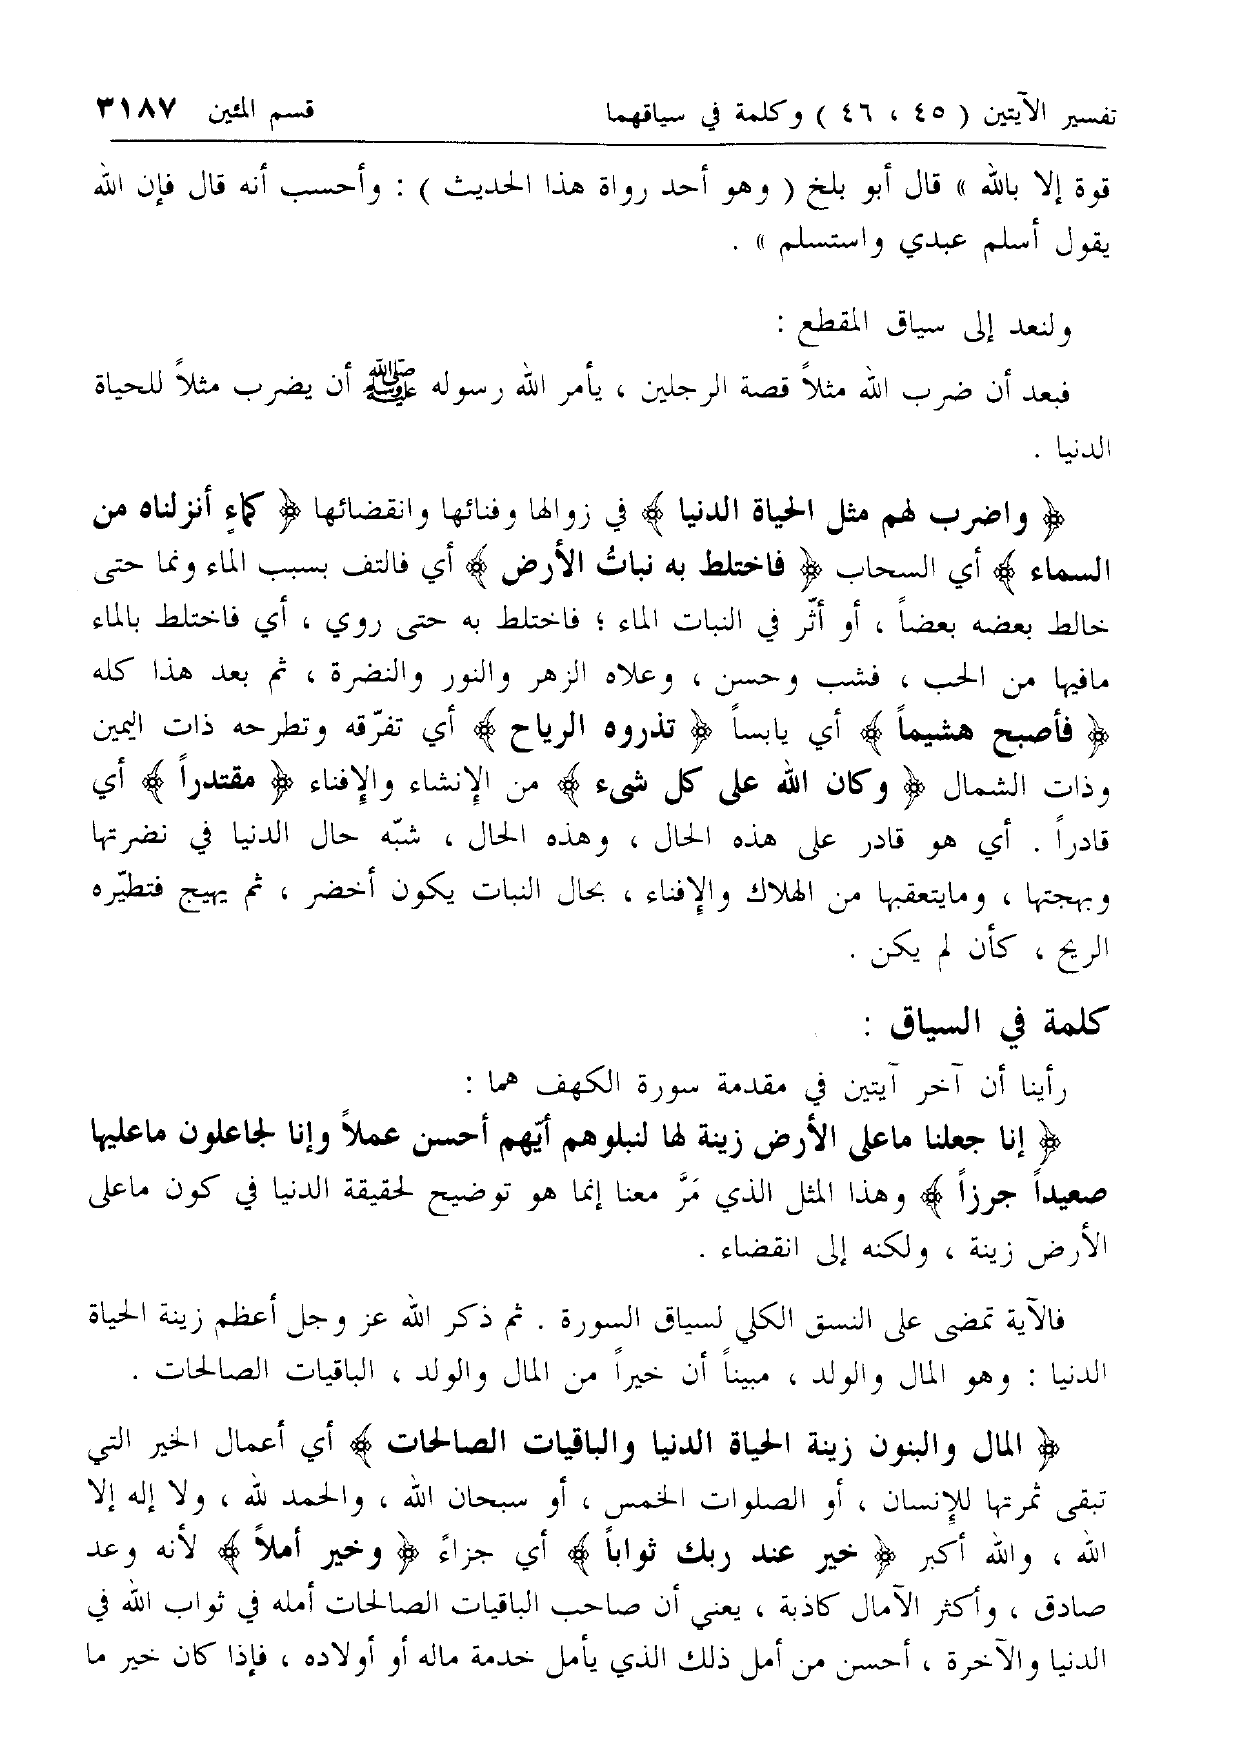 تفسير الآيتين ( ٤٥ ، ٤٦ ) وكلمة في سياقهما قسم المئين ٣١٨٧
قوة إلا بالله » قال أبو بلخ ( وهو أحد رواة هذا الحديث ) : وأحسب أنه قال فإن الله
يقول أسلم عبدي واستسلم » .
ولنعد إلى سياق المقطع :
فبعد أن ضرب الله مثلاً قصة الرجلين ، يأمر الله رسوله ﷺ أن يضرب مثلاً للحياة
الدنيا .
﴿ واضرب لهم مثل الحياة الدنيا ﴾ في زوالها وفنائها وانقضائها ﴿ كماءٍ أنزلناه من
السماء ﴾ أي السحاب ﴿ فاختلط به نباتُ الأرض ﴾ أي فالتف بسبب الماء ونما حتى
خالط بعضه بعضاً ، أو أثّر في النبات الماء ؛ فاختلط به حتى روي ، أي فاختلط بالماء
مافيها من الحب ، فشب وحسن ، وعلاه الزهر والنور والنضرة ، ثم بعد هذا كله
﴿ فأصبح هشيماً ﴾ أي يابساً ﴿ تذروه الرياح ﴾ أي تفرّقه وتطرحه ذات اليمين
وذات الشمال ﴿ وكان الله على كل شيء ﴾ من الإنشاء والإفناء ﴿ مقتدراً ﴾ أي
قادراً . أي هو قادر على هذه الحال ، وهذه الحال ، شبّه حال الدنيا في نضرتها
وبهجتها ، ومايتعقبها من الهلاك والإفناء ، بحال النبات يكون أخضر ، ثم يهيج فتطيّره
الريح ، كأن لم يكن .
كلمة في السياق :
رأينا أن آخر آيتين في مقدمة سورة الكهف هما :
﴿ إنا جعلنا ماعلى الأرض زينة لها لنبلوهم أيّهم أحسن عملاً وإنا لجاعلون ماعليها
صعيداً جرزاً ﴾ وهذا المثل الذي مَرَّ معنا إنما هو توضيح لحقيقة الدنيا في كون ماعلى
الأرض زينة ، ولكنه إلى انقضاء .
فالآية تمضى على النسق الكلي لسياق السورة . ثم ذكر الله عز وجل أعظم زينة الحياة
الدنيا : وهو المال والولد ، مبيناً أن خيراً من المال والولد ، الباقيات الصالحات .
﴿ المال والبنون زينة الحياة الدنيا والباقيات الصالحات ﴾ أي أعمال الخير التي
تبقى ثمرتها للإنسان ، أو الصلوات الخمس ، أو سبحان الله ، والحمد لله ، ولا إله إلا
الله ، والله أكبر ﴿ خير عند ربك ثواباً ﴾ أي جزاءً ﴿ وخير أملاً ﴾ لأنه وعد
صادق ، وأكثر الآمال كاذبة ، يعني أن صاحب الباقيات الصالحات أمله في ثواب الله في
الدنيا والآخرة ، أحسن من أمل ذلك الذي يأمل خدمة ماله أو أولاده ، فإذا كان خير ما